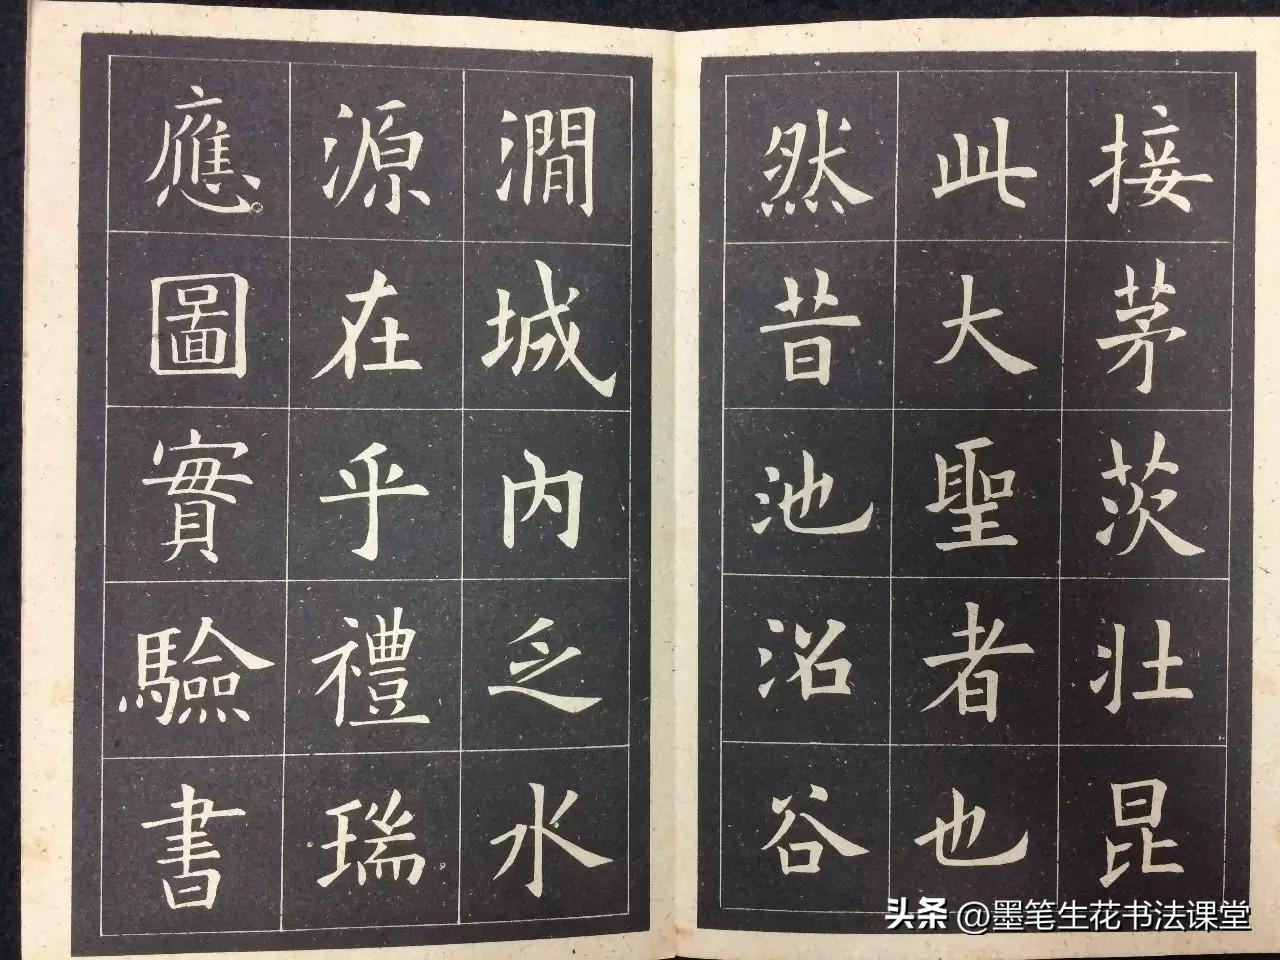 接茅茨壯昆
此大聖者也
然昔池沼谷
澗城內乏水
源在乎禮瑞
應圖實驗書
头条 @墨笔生花书法课堂